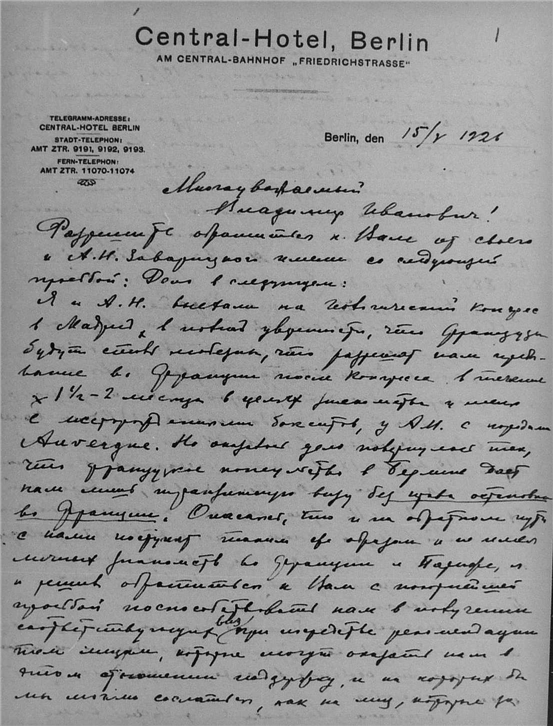 Central-Hotel, Berlin
AM CENTRAL-BAHNHOF „FRIEDRICHSTRASSE"
TELEGRAMM-ADRESSE:
CENTRAL-HOTEL BERLIN
STADT-TELEPHON:
AMT ZTR. 9191, 9192, 9193.
FERN-TELEPHON:
AMT ZTR. 11070-11074
Berlin, den 15/V 1926
Многоуважаемый
Владимир Иванович!
Разрешите обратиться к Вам от своего
и А.Н. Заварицкого имени со следующей
просьбой: Дело в следующем:
Я и А.Н. выехали на Геологический Конгресс
в Мадрид в полной уверенности, что Французы
будут столь любезны, что разрешат нам пребы-
вание во Франции после Конгресса в течение
1½-2 месяца в целях знакомства у меня
с месторождениями бокситов, у А.Н. с породами
Auvergne. Но оказывается дело повернулось так,
что французское консульство в Берлине дает
нам лишь транзитную визу без права остановки
во Франции. Опасаясь, что и на обратном пути
с нами поступят таким же образом и не имея
личных знакомств во Франции и Париже, я
и решил обратиться к Вам с покорнейшей
просьбой поспособствовать нам в получении
соответствующих виз при посредстве рекомендации
тем лицам, которые могут оказать нам в
этом отношении поддержку, и на которых бы
мы могли сослаться, как на лиц, которые за